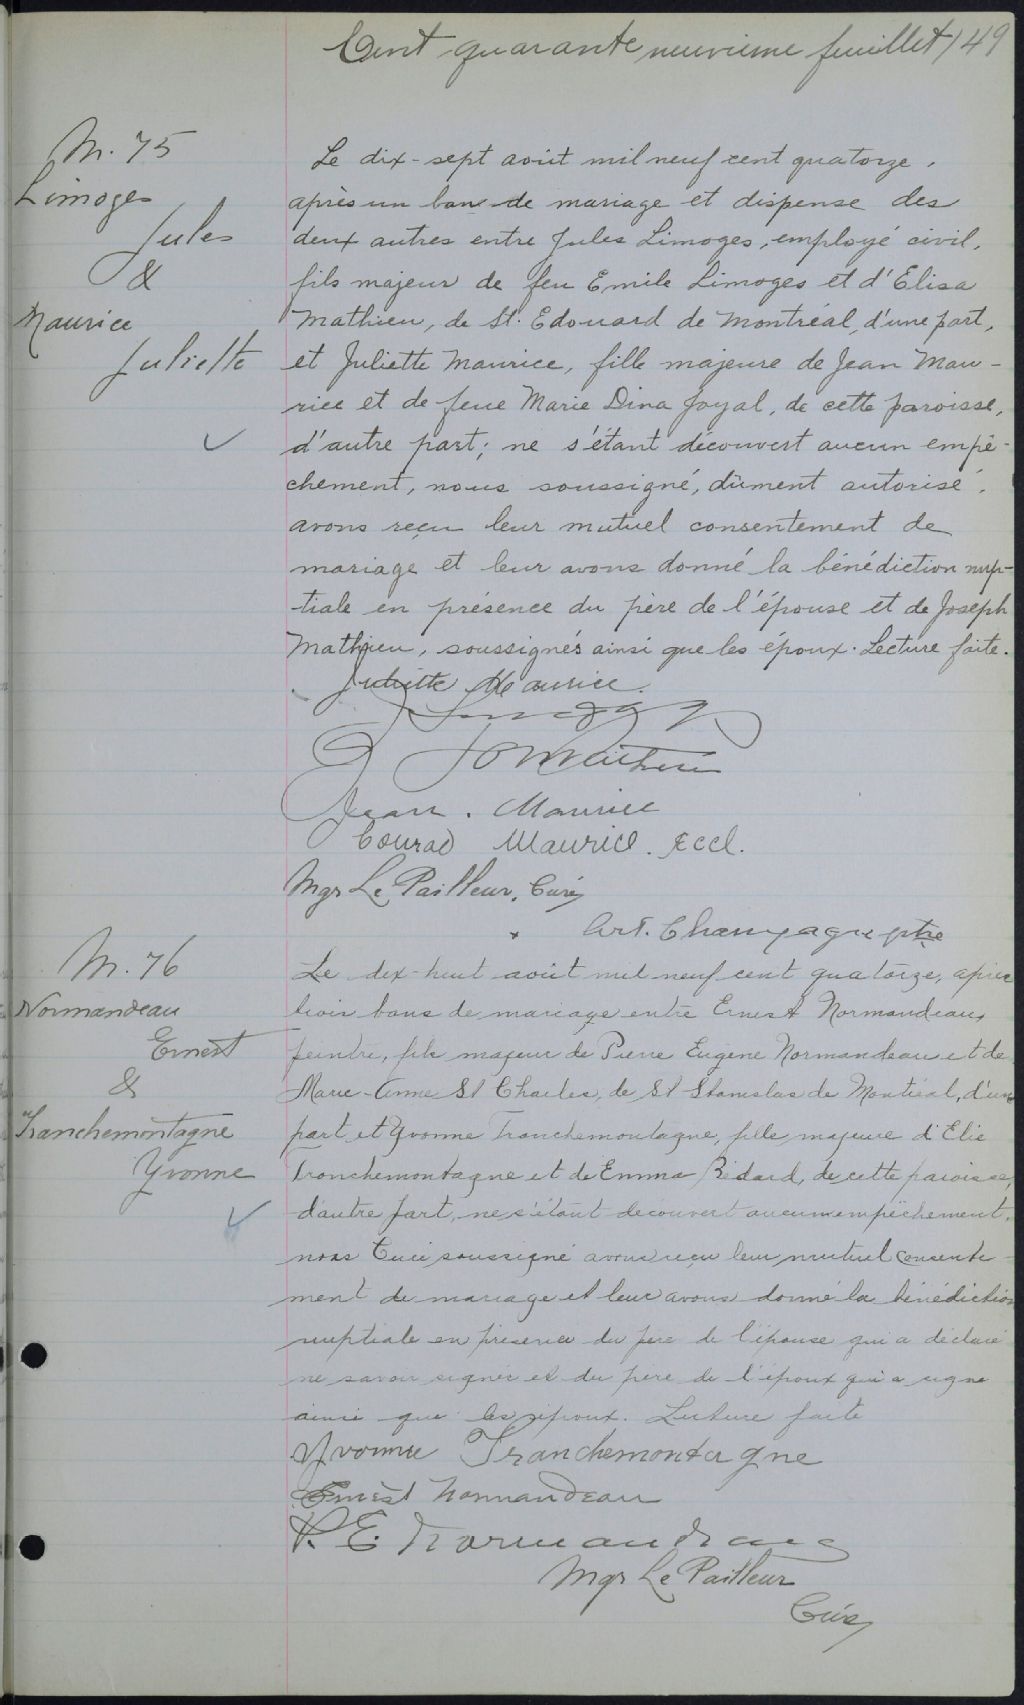 Cent quarante neuvième feuillet 149
M. 75
Limoges
Jules
&
Maurice
Juliette
Le dix-sept août mil neuf cent quatorze,
après un ban de mariage et dispense des
deux autres entre Jules Limoges, employé civil,
fils majeur de feu Emile Limoges et d'Elisa
Mathieu, de St. Edouard de Montréal, d'une part,
et Juliette Maurice, fille majeure de Jean Mau-
rice et de feue Marie Dina Joyal, de cette paroisse,
d'autre part; ne s'étant découvert aucun empê-
chement, nous soussigné, dûment autorisé,
avons reçu leur mutuel consentement de
mariage et leur avons donné la bénédiction nup-
tiale en présence du père de l'épouse et de Joseph
Mathieu, soussignés ainsi que les époux. Lecture faite.
Juliette Maurice.
J Limoges
Jos Mathieu
Jean. Maurice
Conrad Maurice. Eccl.
Mgr Le Pailleur, Curé
Art. Champagne ptre
M. 76
Normandeau
Ernest
&
Tranchemontagne
Yvonne
Le dix-huit août mil neuf cent quatorze, après
trois bans de mariage entre Ernest Normandeau,
peintre, fils majeur de Pierre Eugène Normandeau et de
Marie-Anne St Charles, de St Stanislas de Montréal, d'une
part, et Yvonne Tranchemontagne, fille majeure d'Elie
Tranchemontagne et de Emma Bédard, de cette paroisse,
d'autre part, ne s'étant découvert aucun empêchement,
nous Curé soussigné avons reçu leur mutuel consente-
ment de mariage et leur avons donné la bénédiction
nuptiale en présence du père de l'épouse qui a déclaré
ne savoir signer et du père de l'époux qui a signé
ainsi que les époux. Lecture faite
Yvonne Tranchemontagne
Ernèst Normandeau
P. E. Normandeau
Mgr Le Pailleur
Curé